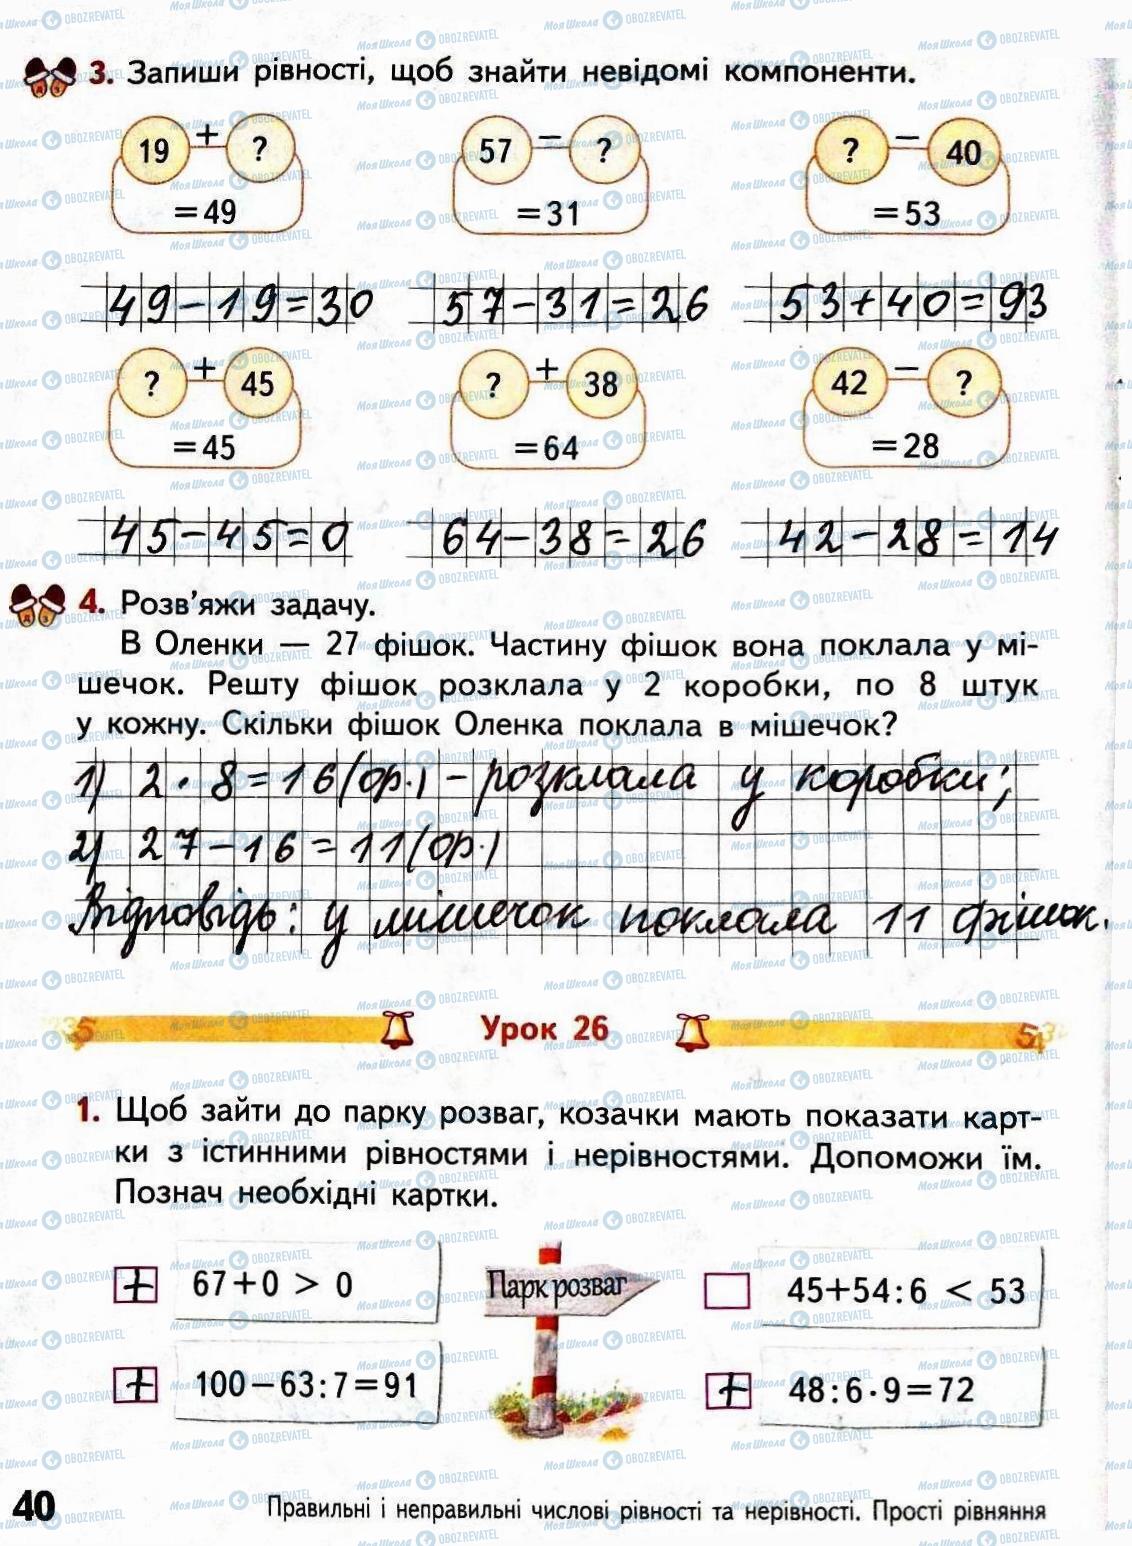 3. Запиши рівності, щоб знайти невідомі компоненти.
19 + ? 57 − ? ? − 40
=49 =31 =53
49−19=30 57−31=26 53+40=93
? + 45 ? + 38 42 − ?
=45 =64 =28
45−45=0 64−38=26 42−28=14
4. Розв'яжи задачу.
В Оленки — 27 фішок. Частину фішок вона поклала у мі-
шечок. Решту фішок розклала у 2 коробки, по 8 штук
у кожну. Скільки фішок Оленка поклала в мішечок?
1) 2·8=16(ф.) – розклала у коробки;
2) 27−16=11(ф.)
Відповідь: у мішечок поклала 11 фішок.
Урок 26
1. Щоб зайти до парку розваг, козачки мають показати карт-
ки з істинними рівностями і нерівностями. Допоможи їм.
Познач необхідні картки.
+ 67+0 > 0 Парк розваг 45+54:6 < 53
+ 100−63:7=91 + 48:6·9=72
40 Правильні і неправильні числові рівності та нерівності. Прості рівняння
МояШкола OBOZREVATEL